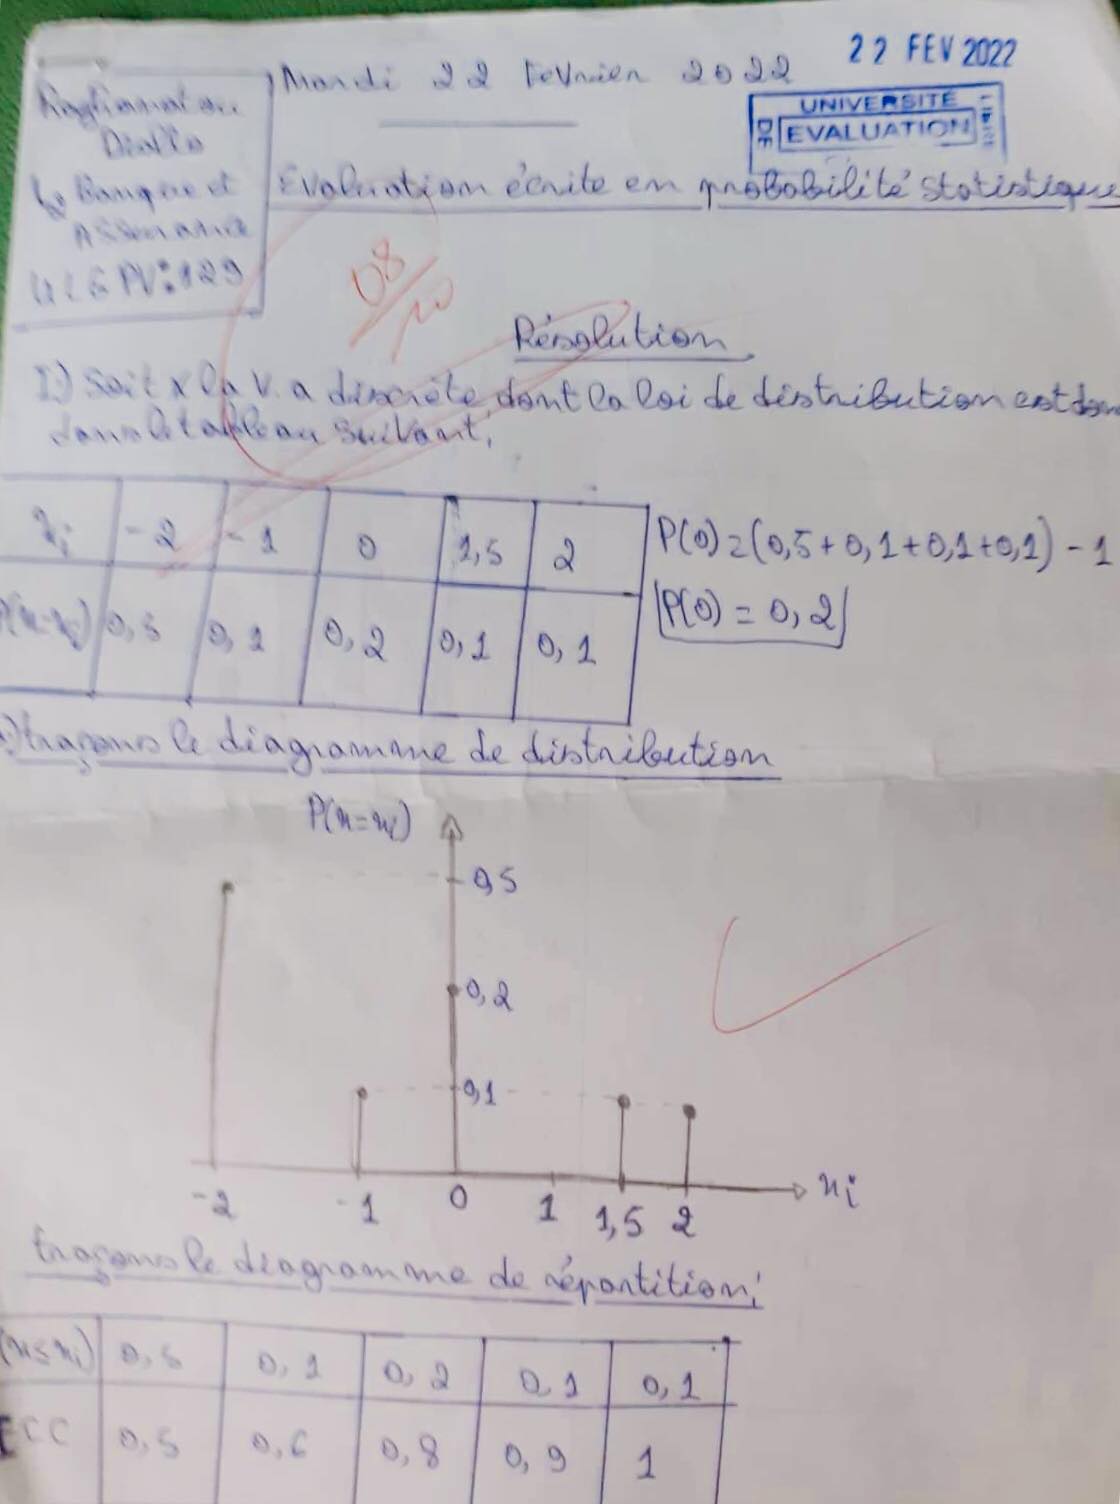 22 FEV 2022
Mardi 22 Février 2022
UNIVERSITÉ
DE
EVALUATION
Diallo
Banque et
Assurance
PV: 129
Evaluation écrite en probabilité statistique
08/10
Résolution
I.) Soit x la v.a discrète dont la loi de distribution est don
dans le tableau suivant,
xi -2 -1 0 1,5 2
P(x=xi) 0,5 0,1 0,2 0,1 0,1
P(0)=(0,5+0,1+0,1+0,1)-1
P(0) = 0,2
traçons le diagramme de distribution
P(x=xi)
0,5
0,2
0,1
-2 -1 0 1 1,5 2 xi
traçons le diagramme de répartition;
(x≤xi) 0,5 0,1 0,2 0,1 0,1
ECC 0,5 0,6 0,8 0,9 1